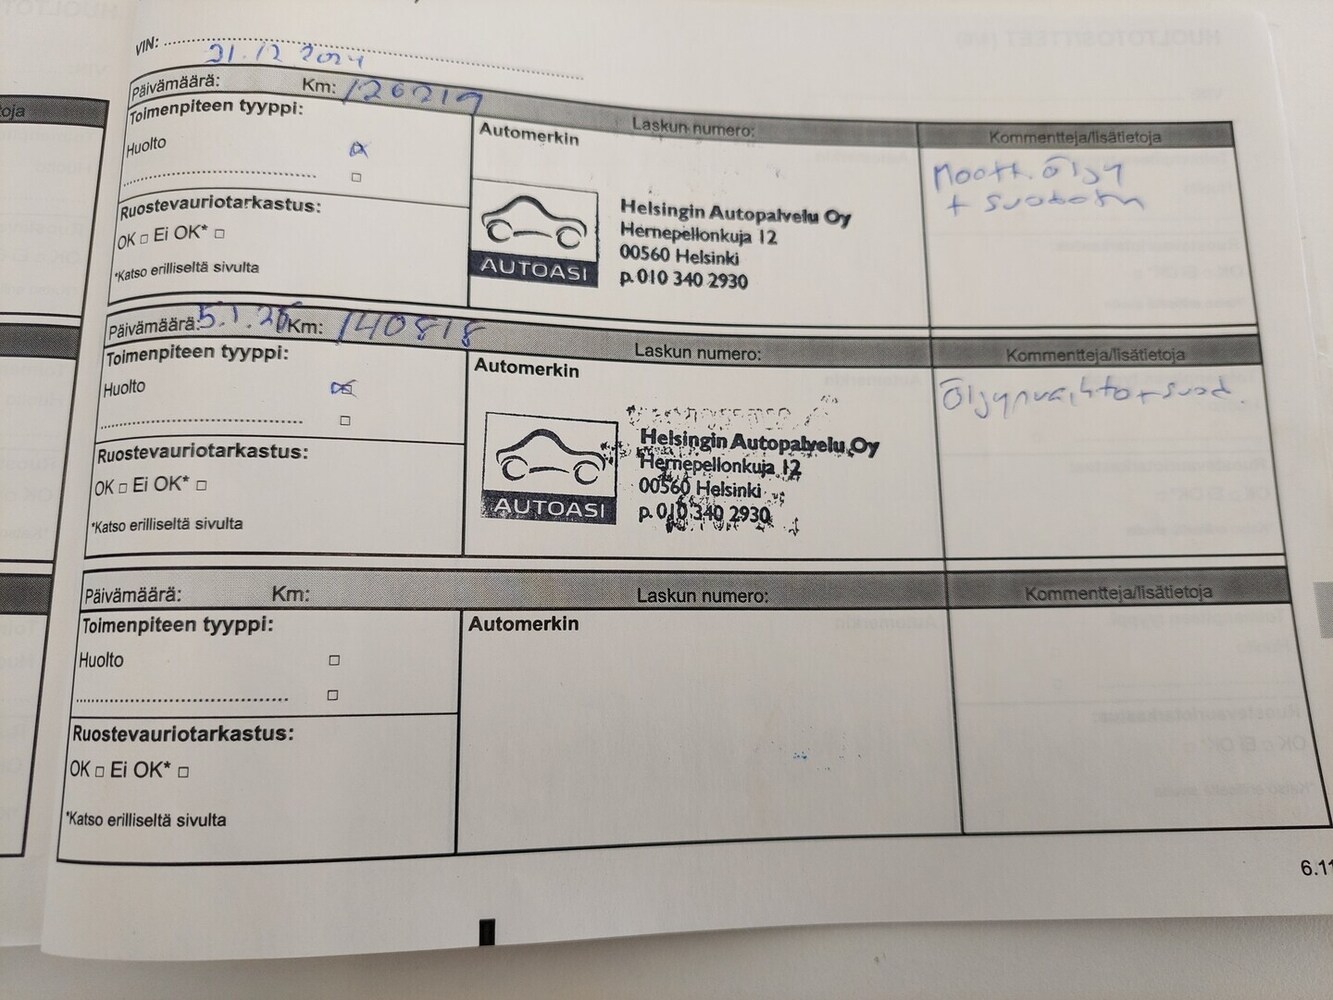 VIN:
31.12 2024
Päivämäärä: Km: 126219
Laskun numero:
Kommentteja/lisätietoja
Toimenpiteen tyyppi:
Huolto
Ruostevauriotarkastus:
OK □ Ei OK* □
*Katso erilliseltä sivulta
Automerkin
AUTOASI
Helsingin Autopalvelu Oy
Hernepellonkuja 12
00560 Helsinki
p. 010 340 2930
Moott. öljy
+ suodatin
Päivämäärä: 5.1.26 Km: 140818
Laskun numero:
Kommentteja/lisätietoja
Toimenpiteen tyyppi:
Huolto
Ruostevauriotarkastus:
OK □ Ei OK* □
*Katso erilliseltä sivulta
Automerkin
AUTOASI
Helsingin Autopalvelu Oy
Hernepellonkuja 12
00560 Helsinki
p. 010 340 2930
Öljynvaihto + suod.
Päivämäärä: Km:
Laskun numero:
Kommentteja/lisätietoja
Toimenpiteen tyyppi:
Huolto
Ruostevauriotarkastus:
OK □ Ei OK* □
*Katso erilliseltä sivulta
Automerkin
6.11